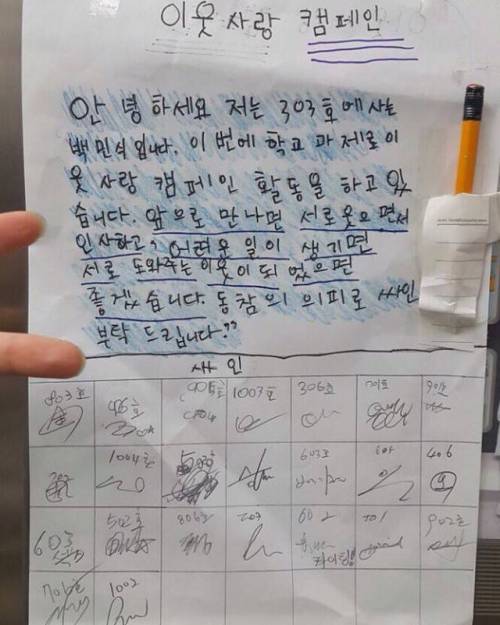 이웃사랑 캠페인
안녕하세요 저는 303호에 사는
백민식입니다. 이번에 학교과제로 이
웃 사랑 캠페인 활동을 하고 있
습니다. 앞으로 만나면 서로웃으면서
인사하고, 어려운 일이 생기면
서로 도와주는 이웃이 되었으면
좋겠습니다. 동참의 의피로 싸인
부탁 드립니다.??
싸인
803호 1003호 306호
1004호 603호 406
603호 502호 806호 203 602 701 902호
화이팅!
1002